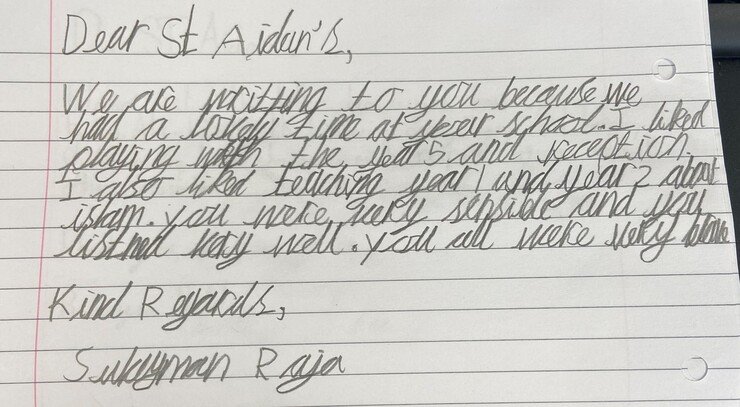 Dear St Aidan's,
We are writting to you because we
had a lovely time at your school. I liked
playing with the year 5 and reception.
I also liked teaching year 1 and year 2 about
islam. you were very sensible and you
listned very well. you all were very
Kind Regards,
Sulayman Raja